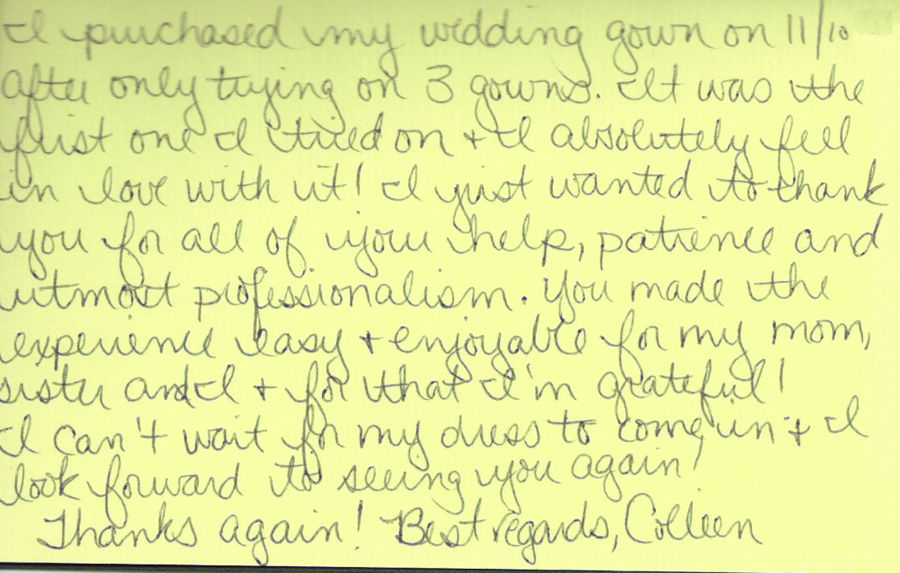 I purchased my wedding gown on 11/10
after only trying on 3 gowns. It was the
first one I tried on + I absolutely fell
in love with it! I just wanted to thank
you for all of your help, patience and
utmost professionalism. You made the
experience easy + enjoyable for my mom,
sister and I + for that I'm grateful!
I can't wait for my dress to come in + I
look forward to seeing you again!
Thanks again! Best regards, Colleen